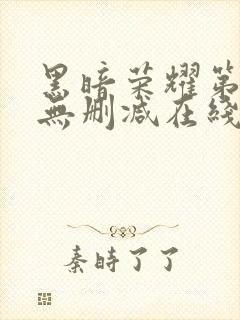 黑暗荣耀第
無删减在綫
秦時了了